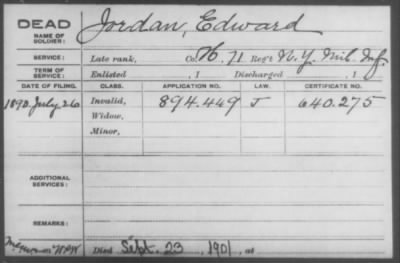 DEAD
NAME OF SOLDIER:
Jordan, Edward
SERVICE:
Late rank, Co. H. 71 Reg't N.Y. Mil. Inf.
TERM OF SERVICE:
Enlisted , 1 Discharged , 1
DATE OF FILING. CLASS. APPLICATION NO. LAW. CERTIFICATE NO.
1890. July 26 Invalid, 894.449 J 640.275
Widow,
Minor,
ADDITIONAL SERVICES:
REMARKS:
Died Sept. 23, 1901, at